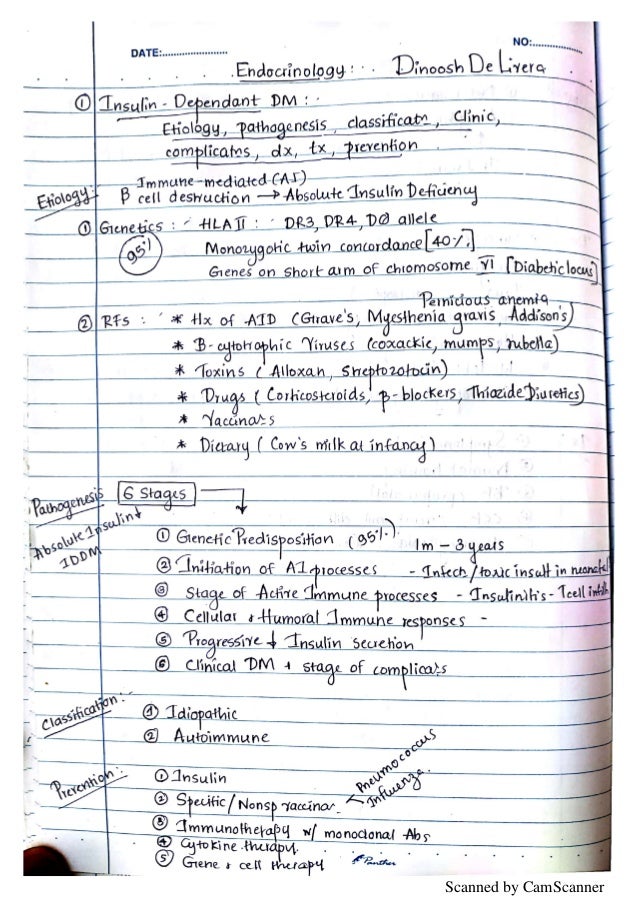 DATE:........................
NO:..................
Endocrinology : Dinoosh De Livera
① Insulin - Dependant DM :
Etiology, pathogenesis, classificatn, clinic,
complicatns, dx, tx, prevention
Etiology : Immune-mediated (AI)
β cell destruction → Absolute Insulin Deficiency
① Genetics : HLA II : DR3, DR4, DQ allele
95% Monozygotic twin concordance [40%]
Genes on short arm of chromosome VI [Diabetic locus]
Pernicious anemia
② RFs : * Hx of AID (Grave's, Myesthenia gravis, Addison's)
* B-cytotrophic Viruses (coxackie, mumps, rubella)
* Toxins (Alloxan, Streptozotocin)
* Drugs (Corticosteroids, β-blockers, Thiazide Diuretics)
* Vaccinats
* Dietary (Cow's milk at infancy)
Pathogenesis 6 stages
Absolute Insulin ↓
IDDM
① Genetic Predisposition (95%)
1m - 3 years
② Initiation of AI processes - Infectn/toxic insult in neonatal
③ Stage of Active Immune processes - Insulinitis - T cell infiltn
④ Cellular & Humoral Immune responses -
⑤ Progressive ↓ Insulin secretion
⑥ Clinical DM + stage of complicats
Classification :-
① Idiopathic
② Autoimmune
Prevention :
① Insulin
② Specific/Nonsp vaccinat < Pneumococcus
Influenza.
③ Immunotherapy w/ monoclonal Abs
④ Cytokine therapy
⑤ Gene & cell therapy
Panther
Scanned by CamScanner